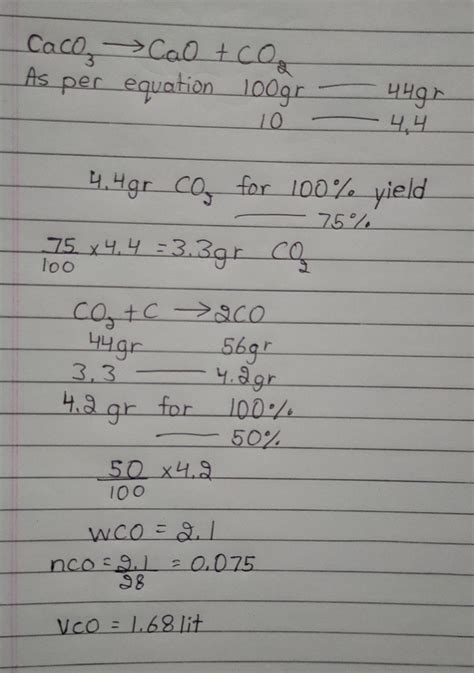 CaCO₃ → CaO + CO₂
As per equation 100gr — 44gr
10 — 4.4
4.4gr CO₂ for 100% yield
— 75%
75/100 × 4.4 = 3.3gr CO₂
CO₂ + C → 2CO
44gr 56gr
3.3 — 4.2gr
4.2 gr for 100%
— 50%
50/100 × 4.2
wCO = 2.1
nco = 2.1/28 = 0.075
VCO = 1.68lit